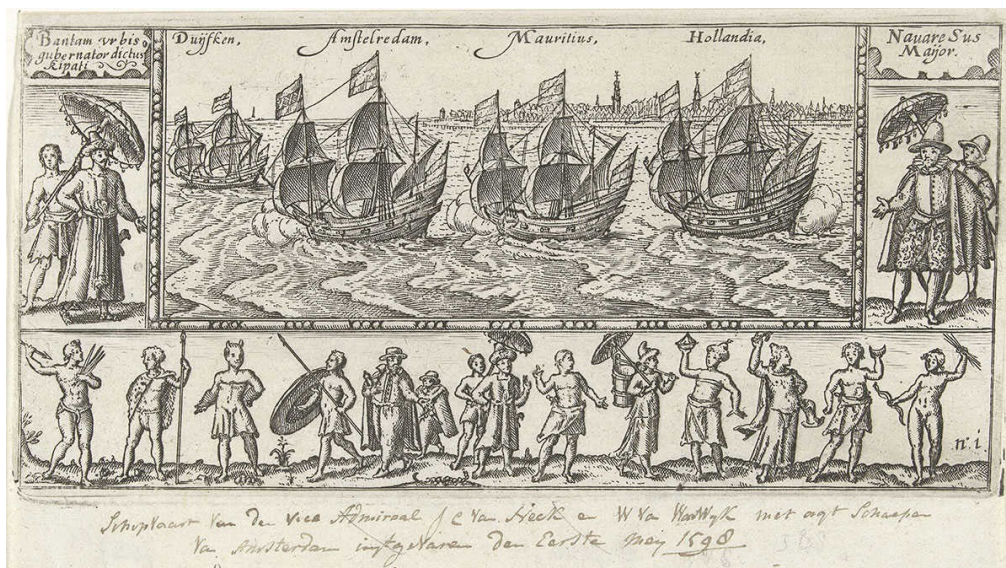 Bantam vrbis
gubernator dictus
Kipati
Duijfken,
Amstelredam,
Mauritius,
Hollandia,
Nauare Sus
Maijor.
n. i
Schipvaart Van den vice Admiraal J C Van Neck en W Van Warwyk met agt Schaepen
Van Amsterdam uijtgevaren den Eerste Meij 1598